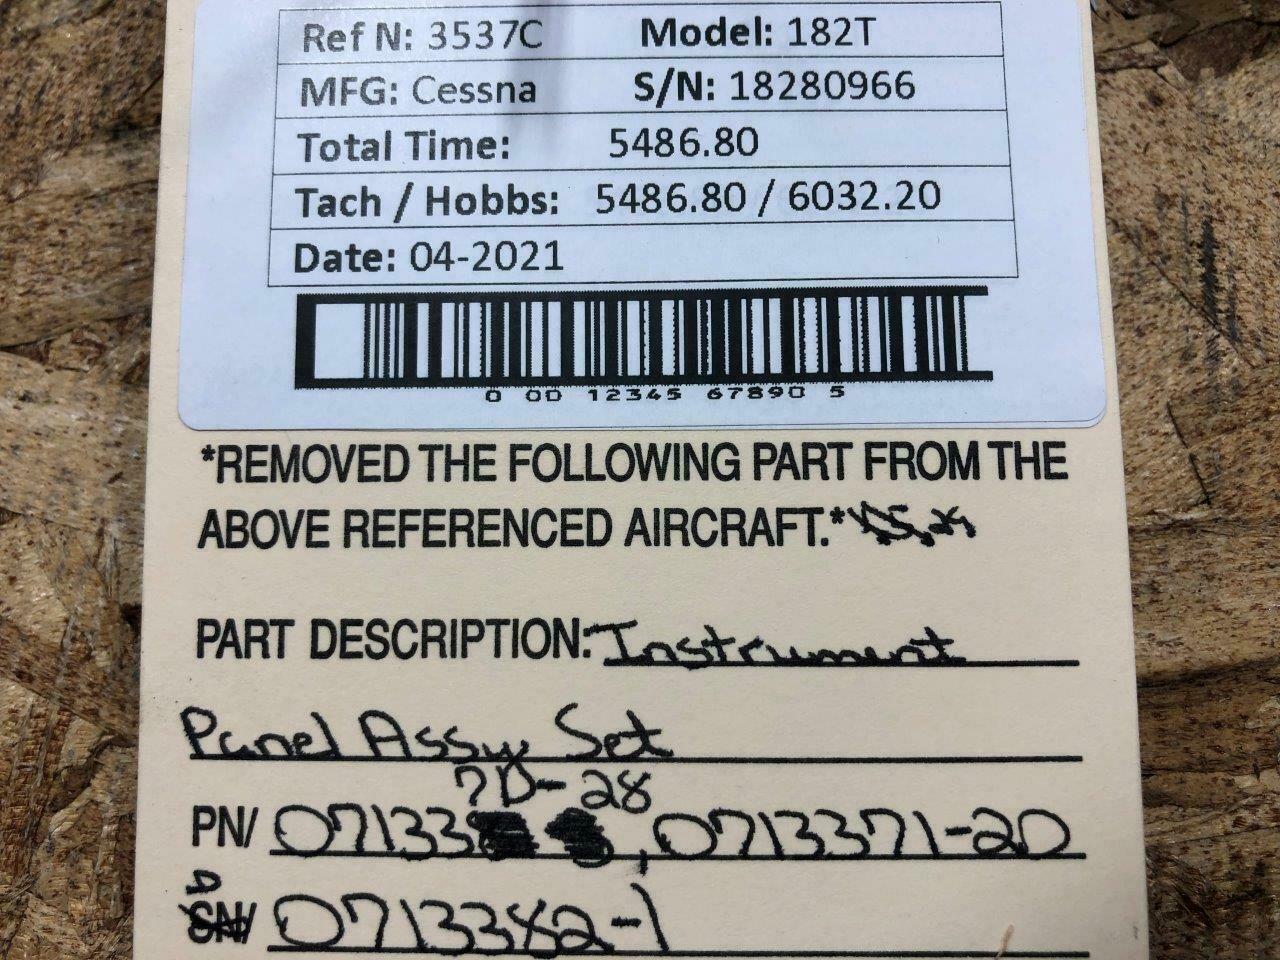 Ref N: 3537C Model: 182T
MFG: Cessna S/N: 18280966
Total Time: 5486.80
Tach / Hobbs: 5486.80 / 6032.20
Date: 04-2021
0 00 12345 67890 5
*REMOVED THE FOLLOWING PART FROM THE
ABOVE REFERENCED AIRCRAFT.*
PART DESCRIPTION: Instrument
Panel Assy Set
70-28
PN/ 07133 , 0713371-20
P
SN/ 0713382-1